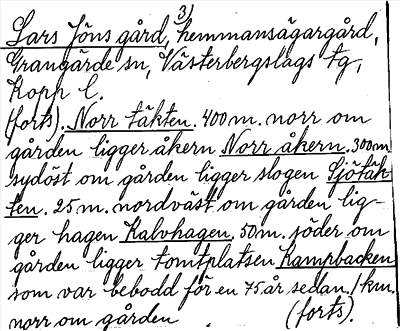 3)
Lars Jöns gård, hemmansägargård,
Grangärde sn, Västerbergslags tg,
Kopp l.
(forts). Norr täkten. 400 m. norr om
gården ligger åkern Norr åkern. 300 m
sydöst om gården ligger slogen Sjötäk-
ten. 25 m. nordväst om gården lig-
ger hagen Kalvhagen. 50 m. söder om
gården ligger tomtplatsen Kampbacken
som var bebodd för en 75 år sedan. 1 km.
norr om gården (forts).